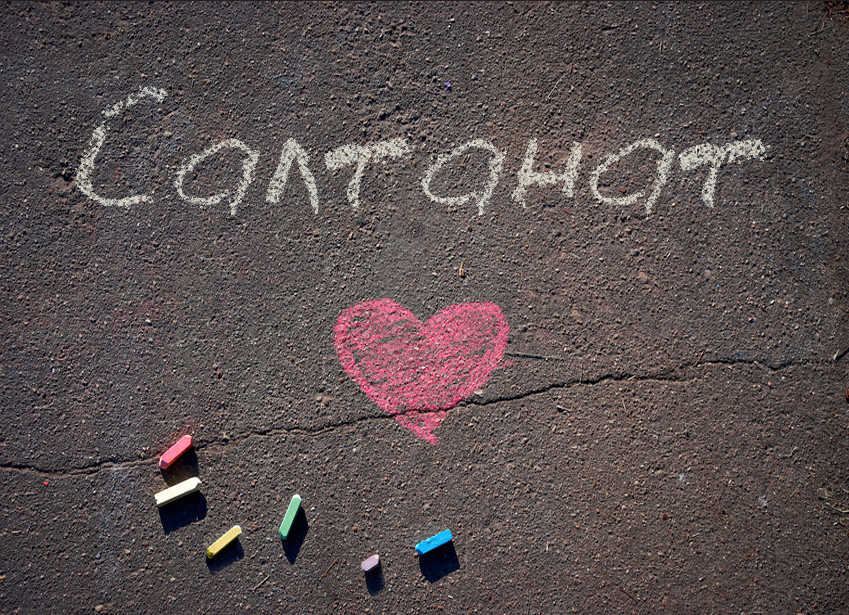 Салтанат